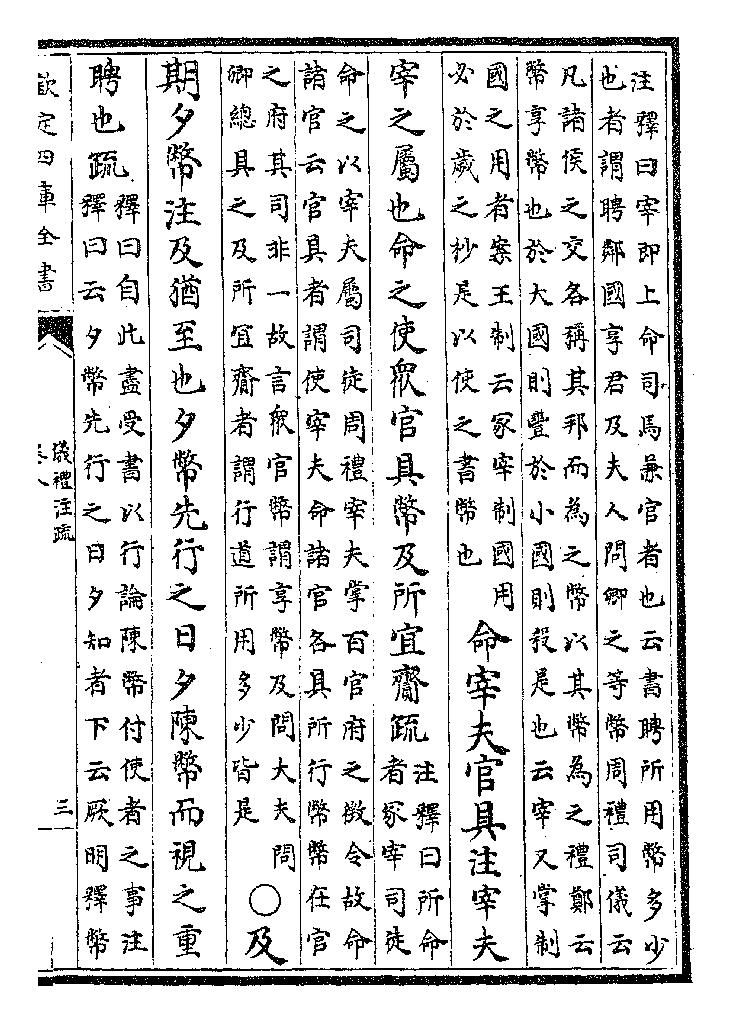 注釋曰宰即上命司馬兼官者也云書聘所用幣多少
也者謂聘鄰國享君及夫人問卿之等幣周禮司儀云
凡諸侯之交各稱其邦而為之幣以其幣為之禮鄭云
幣享幣也於大國則豐於小國則殺是也云宰又掌制
國之用者案王制云冢宰制國用
必於歲之杪是以使之書幣也
命宰夫官具注宰夫
宰之屬也命之使眾官具幣及所宜齎疏
注釋曰所命
者冢宰司徒
命之以宰夫屬司徒周禮宰夫掌百官府之徵令故命
諸官云官具者謂使宰夫命諸官各具所行幣幣在官
之府其司非一故言眾官幣謂享幣及問大夫問
卿總具之及所宜齎者謂行道所用多少皆是
○及
期夕幣注及猶至也夕幣先行之日夕陳幣而視之重
聘也疏
釋曰自此盡受書以行論陳幣付使者之事注
釋曰云夕幣先行之日夕知者下云厥明釋幣
欽定四庫全書
儀禮注疏
卷八
三